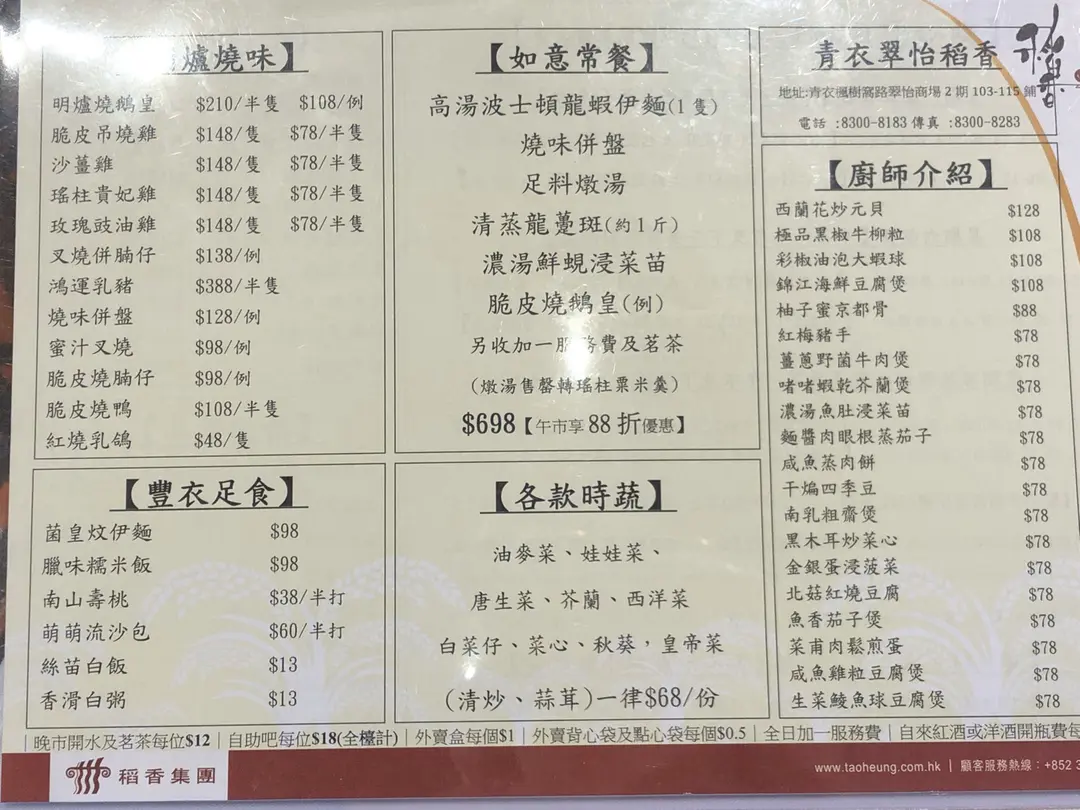 爐燒味】
明爐燒鵝皇 $210/半隻 $108/例
脆皮吊燒雞 $148/隻 $78/半隻
沙薑雞 $148/隻 $78/半隻
瑤柱貴妃雞 $148/隻 $78/半隻
玫瑰豉油雞 $148/隻 $78/半隻
叉燒併腩仔 $138/例
鴻運乳豬 $388/半隻
燒味併盤 $128/例
蜜汁叉燒 $98/例
脆皮燒腩仔 $98/例
脆皮燒鴨 $108/半隻
紅燒乳鴿 $48/隻
【豐衣足食】
菌皇炆伊麵 $98
臘味糯米飯 $98
南山壽桃 $38/半打
萌萌流沙包 $60/半打
絲苗白飯 $13
香滑白粥 $13
【如意常餐】
高湯波士頓龍蝦伊麵(1隻)
燒味併盤
足料燉湯
清蒸龍躉斑(約1斤)
濃湯鮮蜆浸菜苗
脆皮燒鵝皇(例)
另收加一服務費及茗茶
(燉湯售罄轉瑤柱粟米羹)
$698【午市享88折優惠】
【各款時蔬】
油麥菜、娃娃菜、
唐生菜、芥蘭、西洋菜
白菜仔、菜心、秋葵，皇帝菜
(清炒、蒜茸)一律$68/份
青衣翠怡稻香
稻香
地址:青衣楓樹窩路翠怡商場2期103-115鋪
電話 :8300-8183 傳真 :8300-8283
【廚師介紹】
西蘭花炒元貝 $128
極品黑椒牛柳粒 $108
彩椒油泡大蝦球 $108
錦江海鮮豆腐煲 $108
柚子蜜京都骨 $88
紅梅豬手 $78
薑蔥野菌牛肉煲 $78
啫啫蝦乾芥蘭煲 $78
濃湯魚肚浸菜苗 $78
麵醬肉眼根蒸茄子 $78
咸魚蒸肉餅 $78
干煸四季豆 $78
南乳粗齋煲 $78
黑木耳炒菜心 $78
金銀蛋浸菠菜 $78
北菇紅燒豆腐 $78
魚香茄子煲 $78
菜甫肉鬆煎蛋 $78
咸魚雞粒豆腐煲 $78
生菜鯪魚球豆腐煲 $78
| 晚市開水及茗茶每位$12 | 自助吧每位$18(全檯計) | 外賣盒每個$1 | 外賣背心袋及點心袋每個$0.5 | 全日加一服務費 | 自來紅酒或洋酒開瓶費每
稻香集團
www.taoheung.com.hk | 顧客服務熱線：+852 3